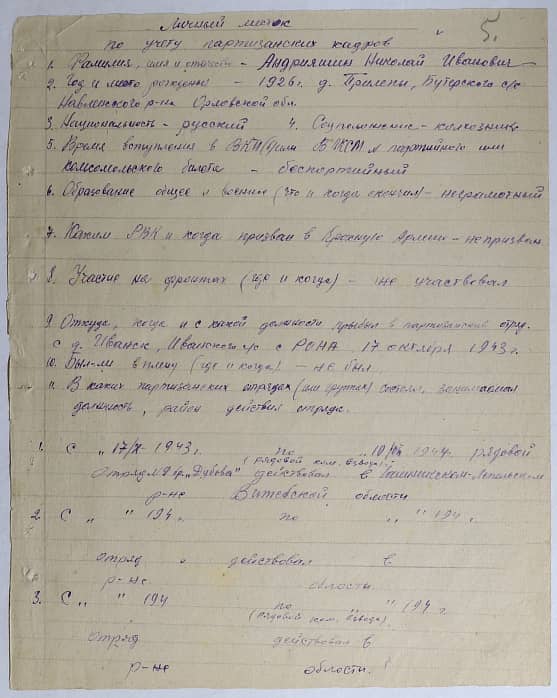 Личный листок
5.
по учету партизанских кадров
1. Фамилия, имя и отчество - Андрияшин Николай Иванович
2. Год и место рождения - 1926 г. д. Прилепы, Бутерского с/с
Навлинского р-на Орловской обл.
3. Национальность - русский 4. Соцположение - колхозник
5. Время вступления в ВКП(б) или ВЛКСМ № партийного или
комсомольского билета - беспартийный
6. Образование общее и военное (что и когда окончил) - неграмотный
7. Каким РВК и когда призван в Красную Армию - не призван
8. Участие на фронтах (где и когда) - не участвовал
9. Откуда, когда и с какой должности прибыл в партизанский отряд
с д. Иванск, Иванского с/с с РОНА 17 октября 1943 г.
10. Был-ли в плену (где и когда) - не был
11. В каких партизанских отрядах (или группах) состоял, занимаемая
должность, район действия отряда.
1. С "17/X - 1943 г. по 1944 г. рядовой
(рядовой ком. взвода)
Отряд № 2 бр. "Дубова" действовал в Лепельском
р-не Витебской области
2. С " " 194 г. по " " 194 г.
отряд действовал в
р-не области.
3. С " " 194 по " " 194 г.
(рядовой ком. взвода)
отряд действовал в
р-не области.